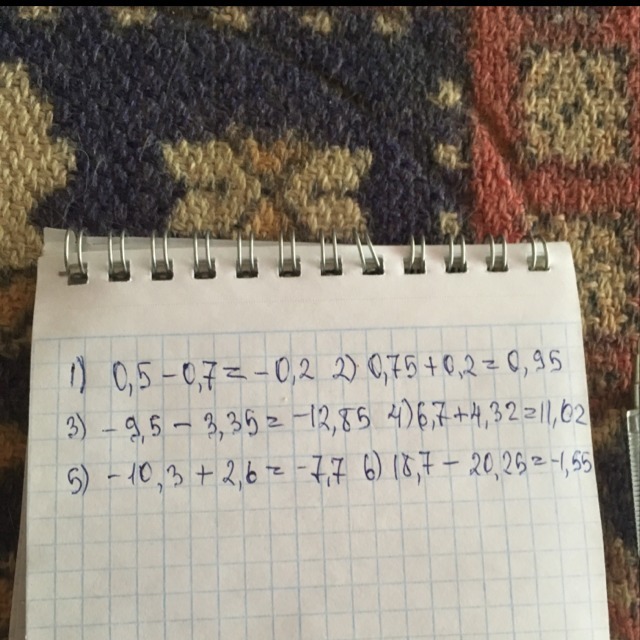 1) 0,5 - 0,7 = - 0,2 2) 0,75 + 0,2 = 0,95
3) - 9,5 - 3,35 = -12,85 4) 6,7 + 4,32 = 11,02
5) - 10,3 + 2,6 = -7,7 6) 18,7 - 20,25 = -1,55